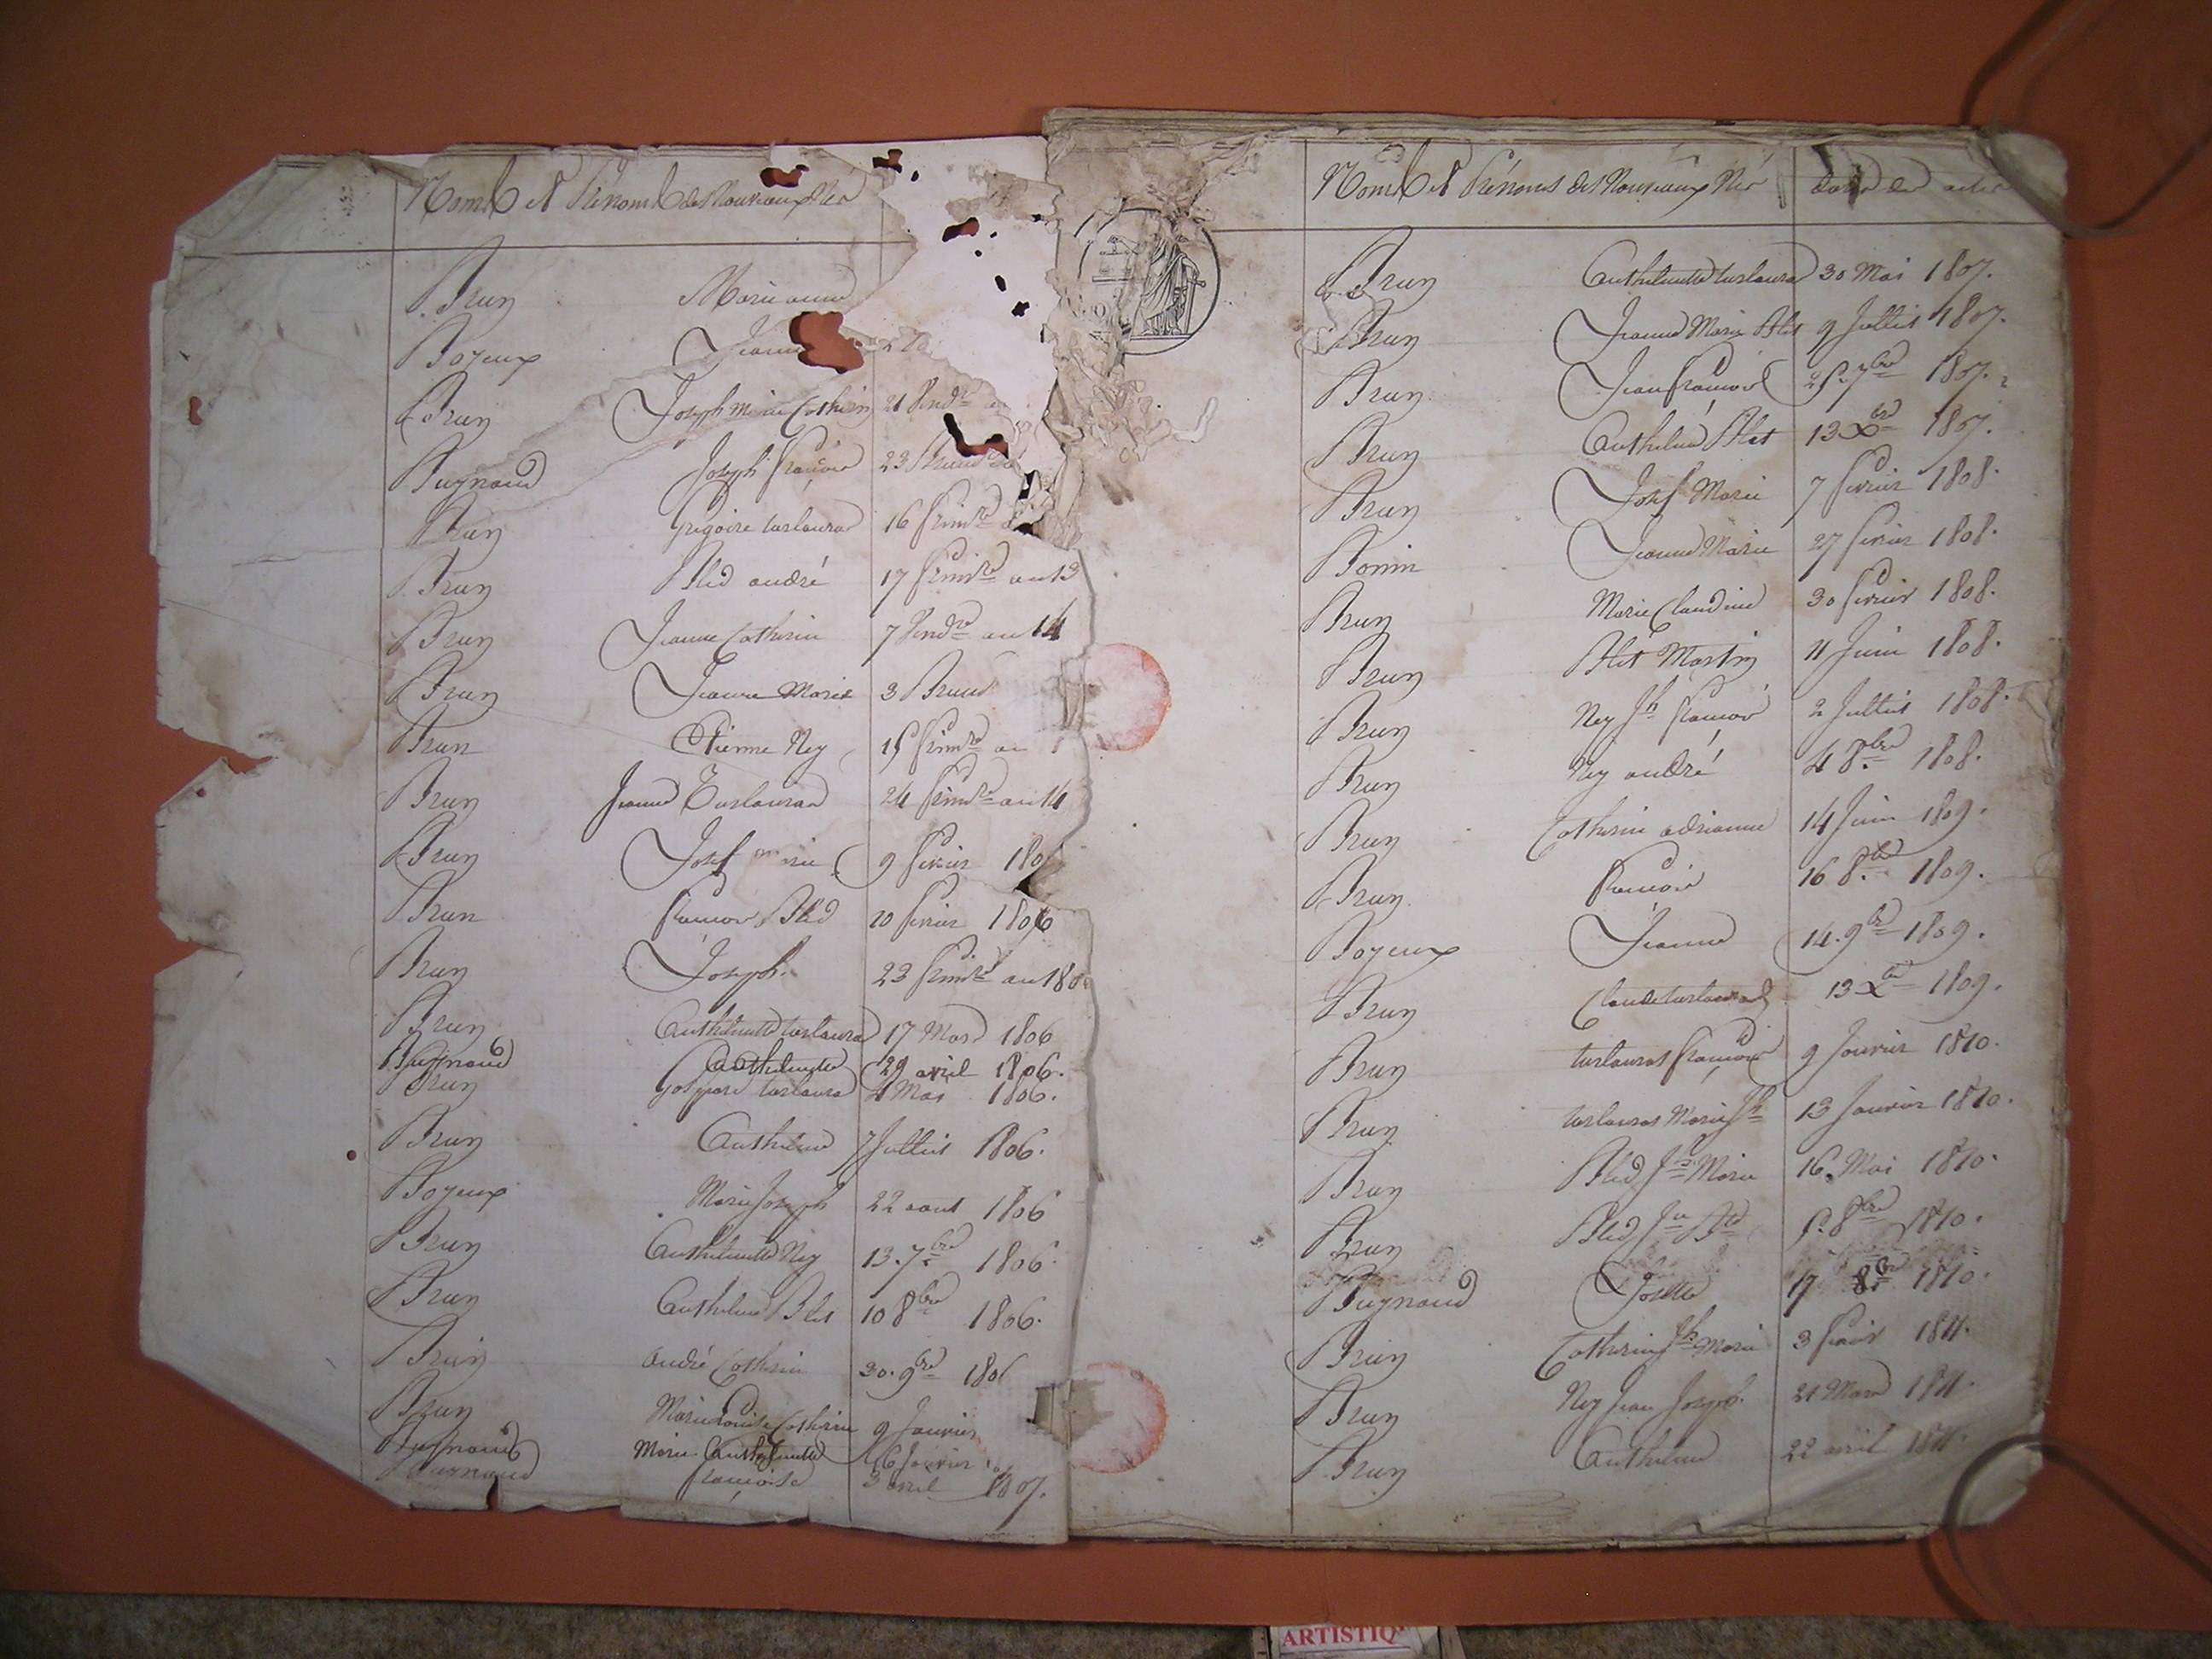 Noms et Prénoms des Nouveaux Nés
Brun Marie anne
Boyeux Jeanne
Brun Joseph Marie Catherin 21 Vendre
Buynaud Joseph françois 23
Brun Grégoire tarlaura 16 frimre
Brun Blid andré 17 frimre an 13
Brun Jeanne Catherin 7 Vendre an 14
Brun Jeanne Marie 3 Brum
Brun Etienne Ney 15 frimre an 1
Brun Jeanne Tarlauran 24 frimre an 14
Brun Josef marie 9 fevrier 180
Brun francois Blid 20 fevrier 1806
Brun Joseph. 23 frimre an 180
Brun Anthelmette tarlaura 17 Mars 1806
Buynaud Anthelmette 29 avril 1806.
Brun gaspare tarlaura 4 Mai 1806.
Brun Anthelme 7 Julliet 1806.
Boyeux Marie Joseph 22 aout 1806
Brun Anthelmette Ney 13. 7bre 1806.
Brun Anthelme Blit 10 8bre 1806.
Brun André Catherin 30. 9bre 1806
Brun Marie Louise Catherin 9 Janvier
Buynaud Marie Anthelmette 6 Janvier
Buynaud françoise 3 avril 1807.
Noms et Prénoms des Nouveaux Nés date des actes
Brun Anthelmette tarlaura 30 Mai 1807.
Brun Jeanne Marie Blit 9 Jullit 1807.
Brun Jean francois 25. 7bre 1807.
Brun Anthelme Blit 13 Xbre 1807.
Brun Josef Marie 7 fevrier 1808.
Bonin Jeanne Marie 27 fevrier 1808.
Brun Marie Claudine 30 fevrier 1808.
Brun Blit Martin 11 Juin 1808.
Brun Ney Jh francois 2 Jullit 1808.
Brun Ney andré 4 8bre 1808.
Brun Catherin adrianne 14 Juin 1809.
Brun francois 16 8bre 1809.
Boyeux Jeanne 14. 9bre 1809.
Brun Claude tarlauras 13 Xbre 1809.
Brun tarlauras francois 9 Janvier 1810.
Brun tarlauras Marie Jh 13 Janvier 1810.
Brun Blid Jne Marie 16 Mai 1810.
Brun Blid 5. 8bre 1810.
Buynaud Josette 17 8bre 1810.
Brun Catherin Jh Marie 3 fevrir 1811.
Brun Ney Jean Joseph. 21 Mars 1811.
Brun Anthelme 22 avril 1811.
ARTISTIQ